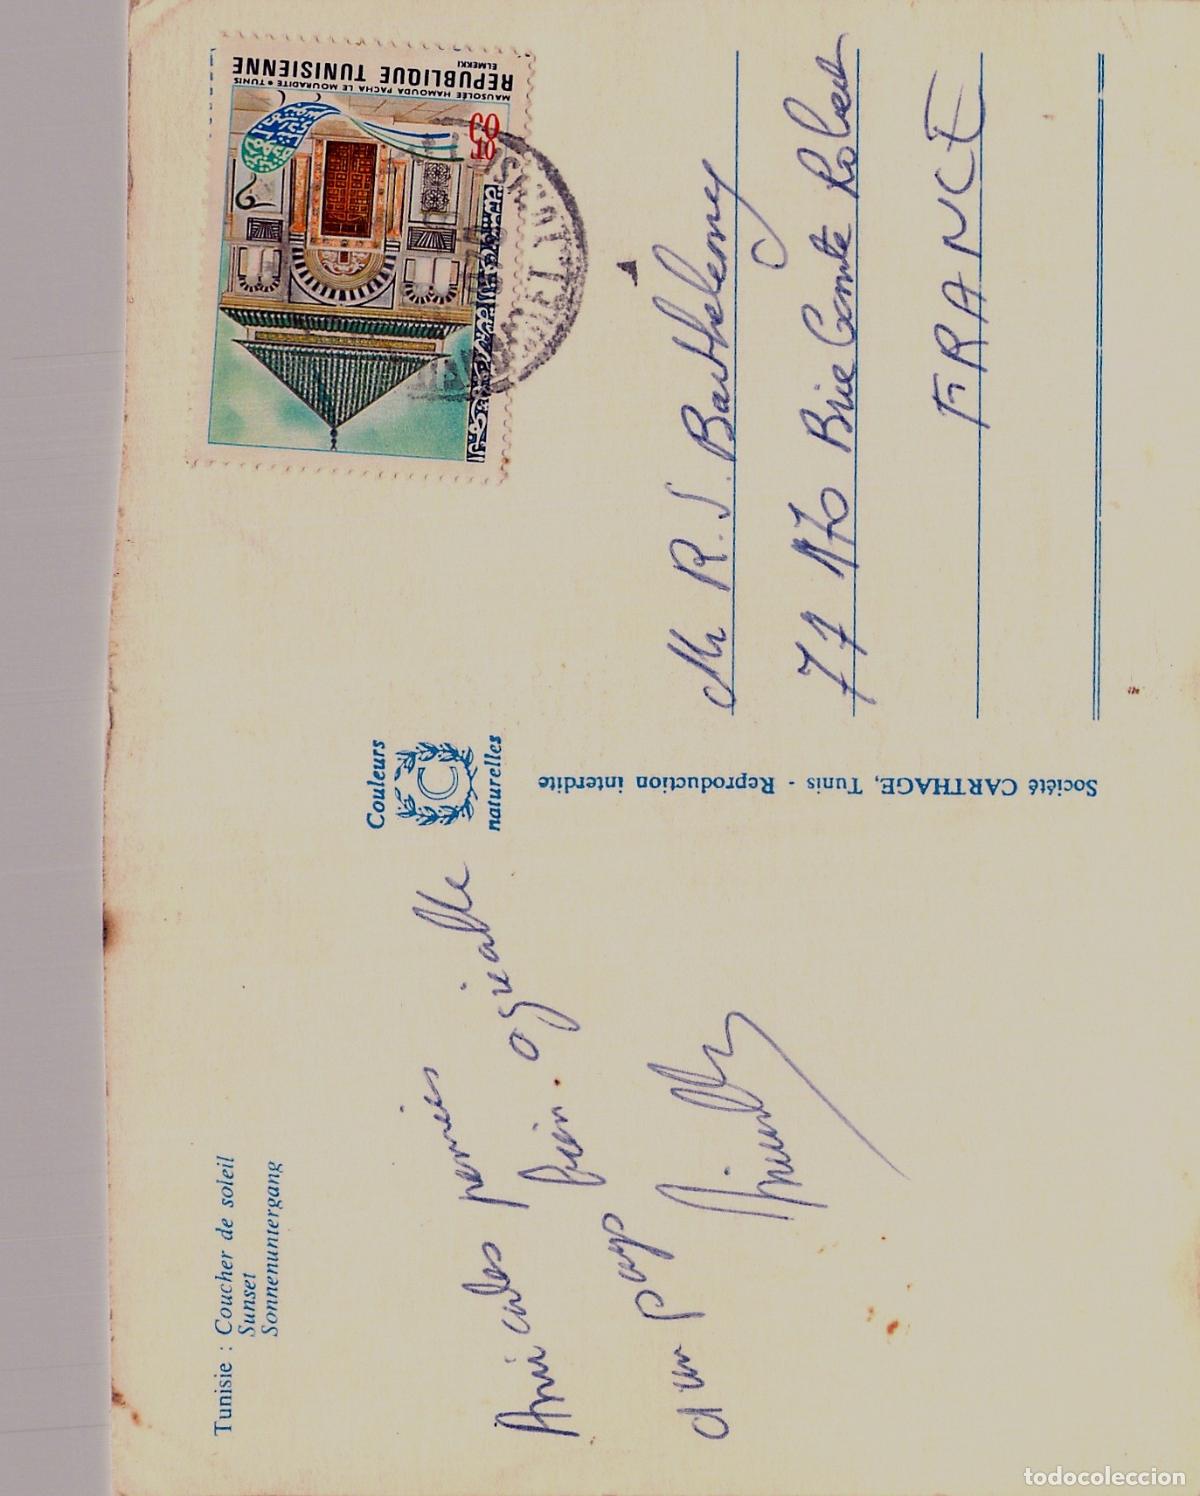 Tunisie : Coucher de soleil
Sunset
Sonnenuntergang
Amicales pensées
d'un pays bien agréable
Couleurs
C
naturelles
Société CARTHAGE, Tunis - Reproduction interdite
REPUBLIQUE TUNISIENNE
ELMEKKI
MAUSOLÉE HAMOUDA PACHA LE MOURADITE • TUNIS
60
10
Mr R. J. Barthelemy
77 170 Brie Comte Robert
FRANCE
todocoleccion